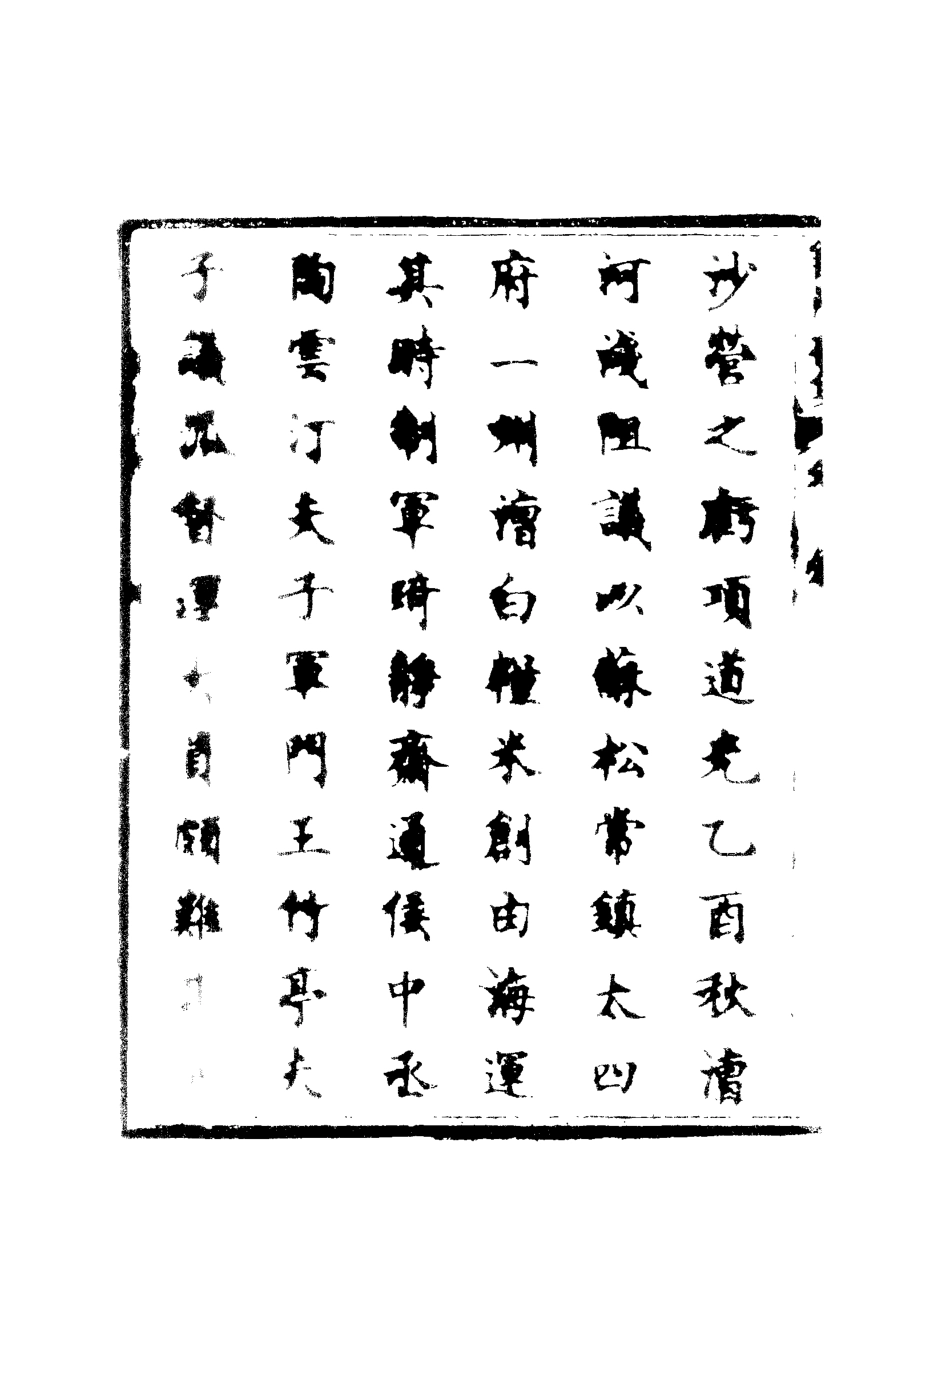 沙營之虧項道光乙酉秋漕
河淺阻議以蘇松常鎮太四
府一州漕白糧米創由海運
其時制軍琦靜齋通侯中丞
陶雲汀夫子軍門王竹亭夫
子議咒督運大員頗難